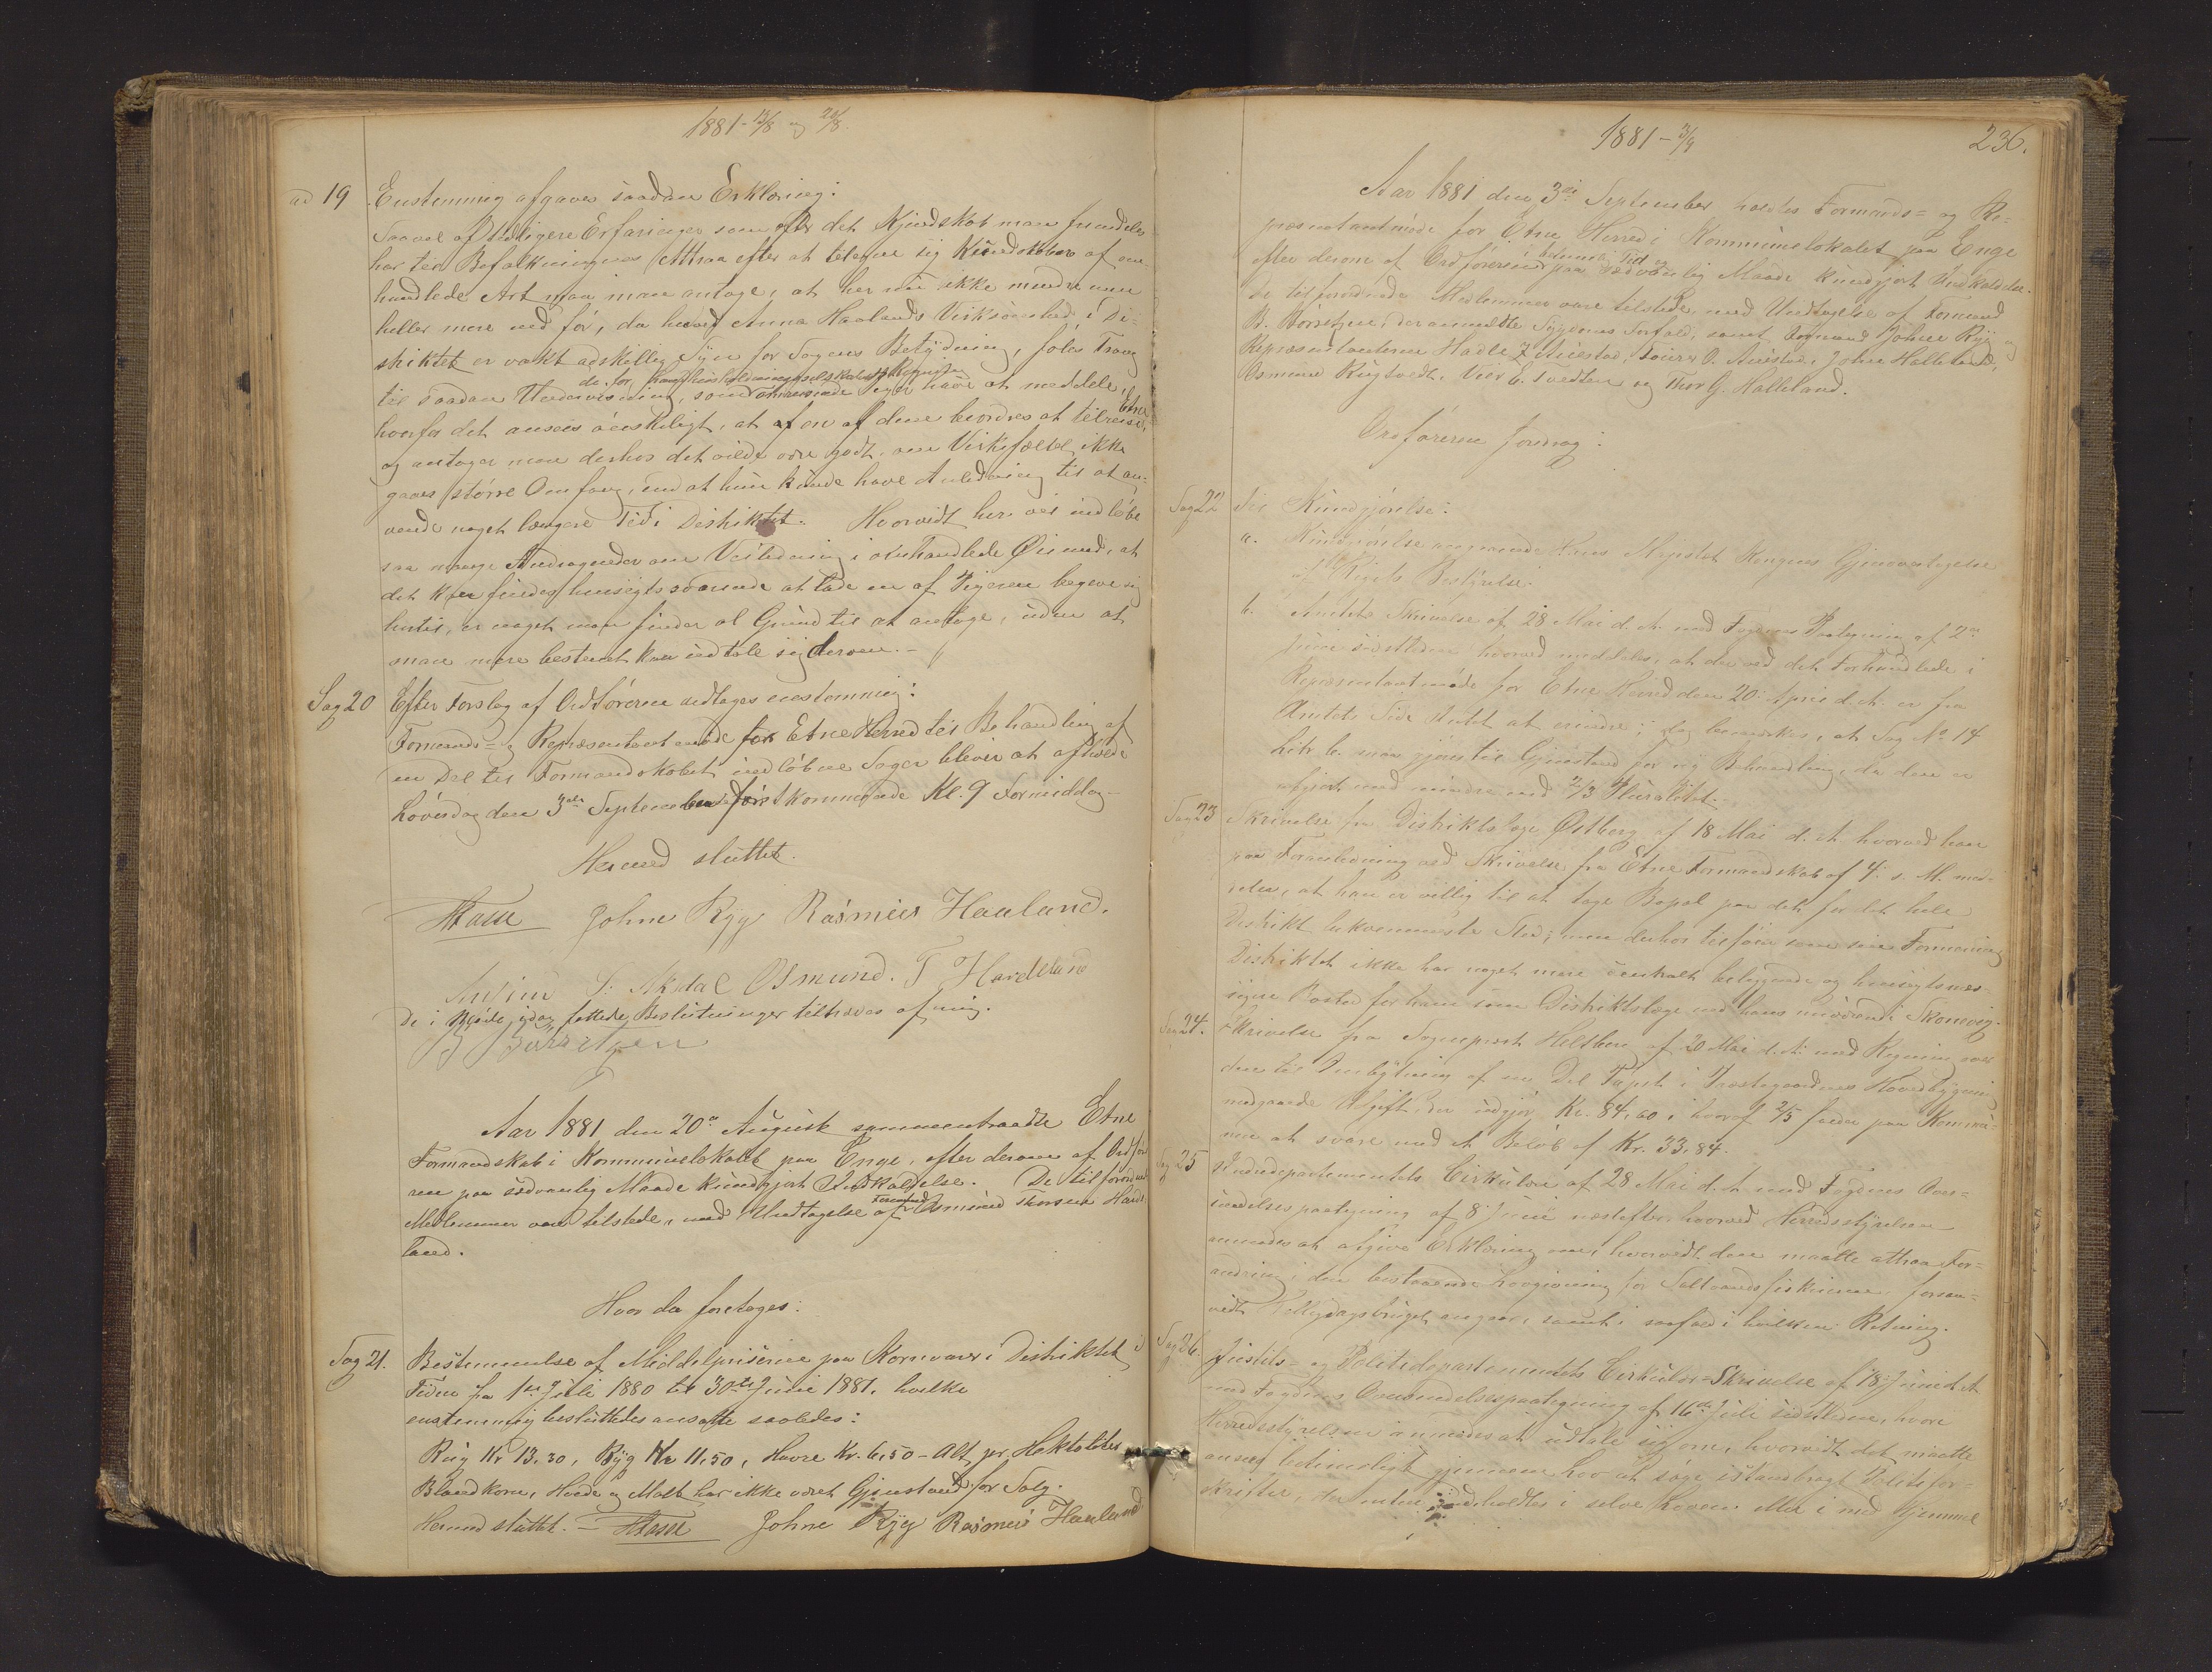 1881 - 13/8 og 20/8.
ad 19 Enstemmig afgaves saadan Erklæring:
Saavel af tidligere Erfaringer som efter det Kjendskab man fremdeles
har til Befolkningens Attraa efter at tilegne sig Kundskaber af om-
handlede Art maa man antage, at her nu ikke mindre men
heller mere end før, da herved Anna Haalands Virksomhed i Di-
striktet er vakt adskillig Syn for Sagens Betydning, føles Trang
til saadan Undervisning, som de for Landhusholdningsselskabets Regning omreisende Piger have at meddele,
hvorfor det ansees ønskeligt, at en af dem beordres at tilreise Etne,
og antager man derhos det vilde være godt, om Virkefeltet ikke
gaves større Omfang, end at hun kunde have Anledning til at an-
vende noget længere Tid i Distriktet. Hvorvidt her vil indløbe
saa mange Andragender om Veiledning i omhandlede Øiemed, at
det kan findes hensigtssvarende at lade en af Pigerne begive sig
hertil, er noget man finder al Grund til at antage, uden at
man mere bestemt kan udtale sig derom. -
Sag 20 Efter Forslag af Ordføreren vedtages enstemmig:
Formands- og Repræsentantmøde for Etne Herred til Behandling af
en Del til Formandskabet indløbne Sager bliver at afholde
Løverdag den 3die September førstkommende Kl. 9 Formiddag -
Hermed sluttet.
Johne Ryg Rasmus Haaland.
S. Akdal Osmund. T Hardeland
De i Møde idag fattede Beslutninger tiltrædes af mig.
B Børretzen
Aar 1881 den 20de August sammentraadte Etne
Formandskab i Kommunelokalet paa Enge, efter derom af Ordfø-
reren paa sædvanlig Maade kundgjort Indkaldelse. De tilforordnede
Medlemmer vare tilstede, med Undtagelse af Formand Osmund Thorsen Harde-
land.
Hvor da foretoges:
Sag 21. Bestemmelse af Middelpriserne paa Kornvarer i Distriktet i
Tiden fra 1ste Juli 1880 til 30te Juni 1881, hvilke
enstemmig besluttedes ansatte saaledes:
Rug Kr 13,30, Byg Kr 11,50, Havre Kr. 6,50 - Alt pr. Hektoliter
Blandkorn, Hvede og Malt har ikke været Gjenstand for Salg.
Hermed sluttet. - Johne Ryg Rasmus Haaland
1881 - 3/9 236.
Aar 1881 den 3die September holdtes Formands- og Re-
præsentantmøde for Etne Herred i Kommunelokalet paa Enge
efter derom af Ordføreren i belovlig Tid og paa sædvanlig Maade kundgjort Indkaldelse.
De tilforordnede Medlemmer vare tilstede, med Undtagelse af Formand
B. Børretzen, der anmeldte Sygdoms Forfald, samt Formand Johne Ryg og
Repræsentanterne Hadle Austad, O. Austad, John Halleland,
Osmund Rugtvedt, Vier E. Tvedten og Thor G. Halleland.
Ordførerens Foredrag:
Sag 22 Til Kundgjørelse:
a. Kundgjørelse angaaende Hans Majestæt Kongens Gjenovertagelse
af Rigets Bestyrelse.
b. Amtets Skrivelse af 28 Mai d. A. med Fogdens Paategning af 2den
Juni sidstleden hvorved meddeles, at der ved det Forhandlede i
Repræsentantmøde for Etne Herred den 20. April d. A. er fra
Amtets Side Intet at erindre; dog bemærkes, at Sag No 14
Litr b. maa gjøres til Gjenstand for ny Behandling, da den er
afgjort med mindre end 2/3 Pluralitet.
Sag 23 Skrivelse fra Distriktslæge Østberg af 18 Mai d. A. hvorved han
paa Foranledning ved Skrivelse fra Etne Formandskab af 4. s. M. med-
deler, at han er villig til at tage Bopæl paa det for det hele
Distrikt bekvemmeste Sted; men derhos tilføier som sin Formening
Distriktet ikke har noget mere centralt beliggende og hensigtsmæs-
sigere Bosted for ham som Distriktslæge end hans nuværende i Skonevig.
Sag 24. Skrivelse fra Sogneprest Heltberg af 20 Mai d. A. med Regning over
den til Ombytning af en Del Tapet i Præstegaardens Hovedbygning
medgaaede Udgift, der udgjør Kr. 84,60, hvoraf 2/5 falder paa Kommu-
nen at svare med et Beløb af Kr. 33,84.
Sag 25 Indredepartementets Cirkulære af 28 Mai d. A. med Fogdens Over-
sendelsespaategning af 8 Juni næstefter, hvorved Herredsstyrelsen
anmodes at afgive Erklæring om, hvorvidt den maatte attraa For-
andring i den bestaaende Lovgivning for Saltvandsfiskerierne, forsaa-
vidt Helligdagsbruget angaar, samt i saafald i hvilken Retning.
Sag 26. Justits- og Politidepartementets Cirkulær-Skrivelse af 18 Juni d. A.
med Fogdens Oversendelsespaategning af 16de Juli sidstleden, hvori
Herredsstyrelsen anmodes at udtale sig om, hvorvidt det maatte
ansees betimeligt gjennem Lov at søge istandbragt Politifor-
skrifter, der enten indeholdtes i selve Loven eller i med Hjemmel